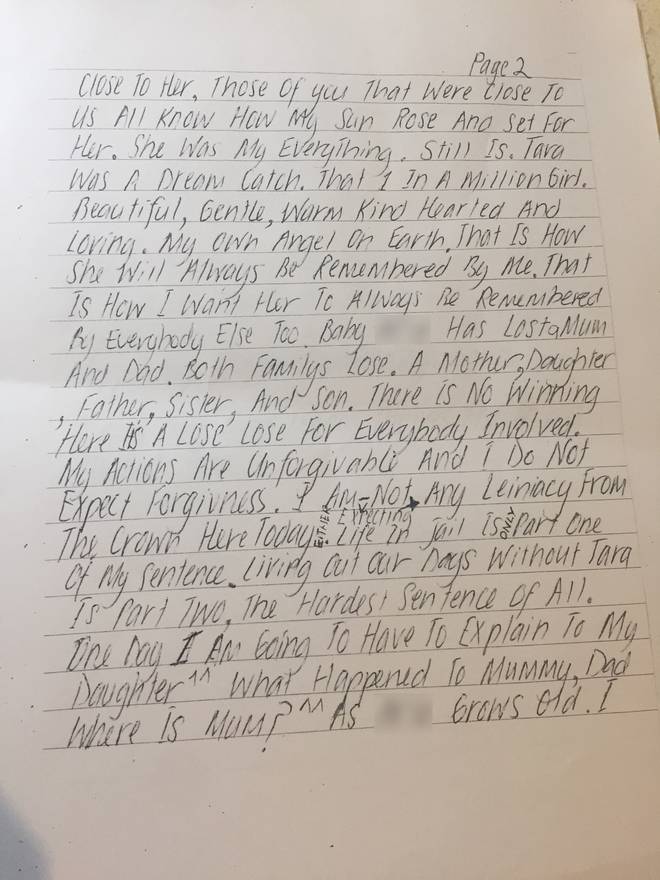 Page 2
Close To Her, Those Of you That Were Close To
Us All Know How My Sun Rose And Set For
Her. She Was My Everything. Still Is. Tara
Was A Dream Catch. That 1 In A Million Girl.
Beautiful, Gentle, Warm Kind Hearted And
Loving. My Own Angel On Earth, That Is How
She Will Always Be Remembered By Me. That
Is How I Want Her To Always Be Remembered
By Everybody Else Too. Baby Has Lost a Mum
And Dad. Both Familys Lose. A Mother, Daughter
, Father, Sister, And Son. There is No Winning
Here It's A Lose Lose For Everybody Involved.
My Actions Are Unforgivable And I Do Not
Expect Forgivness. I Am Not Expecting Any Leiniacy From
The Crown Here Today EITHER. Life In Jail Is ONLY Part One
Of My Sentence. Living Out Our Days Without Tara
Is Part Two, The Hardest Sentence Of All.
One Day I Am Going To Have To Explain To My
Daughter ^^ What Happened To Mummy, Dad
Where Is Mum? ^^ As Grows Old. I